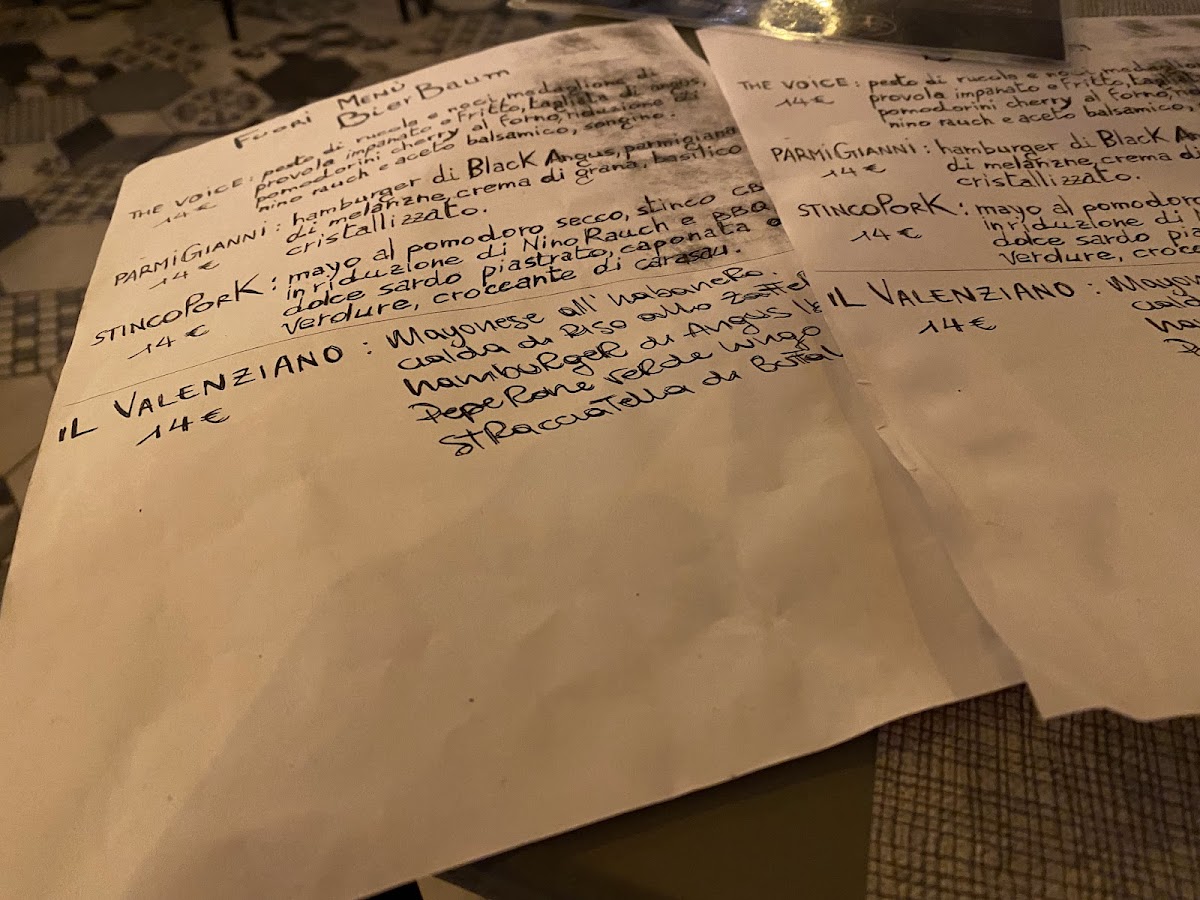 MENÙ
FUORI BierBaum
THE VOICE: pesto di rucola e noci, medaglione di
14€ provola impanato e fritto, tagliata di angus,
pomodorini cherry al forno, riduzione di
nino rauch e aceto balsamico, songino.
PARMIGIANNI: hamburger di Black Angus, parmigiana
14€ di melanzne, crema di grana, basilico
cristallizzato.
STINCOPORK: mayo al pomodoro secco, stinco CB
14€ in riduzione di Nino Rauch e BBQ
dolce sardo piastrato, caponata
verdure, croccante di carasau.
IL VALENZIANO: Mayonese all'habanero.
14€ cialda di Riso allo
hambuRgeR di Angus
PepeRone veRde lungo
StRacciatella di
THE VOICE: pesto di rucola e noci,
14€ provola impanato e fritto, tagliata
pomodorini cherry al forno,
nino rauch e aceto balsamico,
PARMIGIANNI: hamburger di Black
14€ di melanzne, crema di
cristallizzato.
STINCOPORK: mayo al pomodoro
14€ in riduzione di
dolce sardo
verdure,
IL VALENZIANO:
14€ cialda